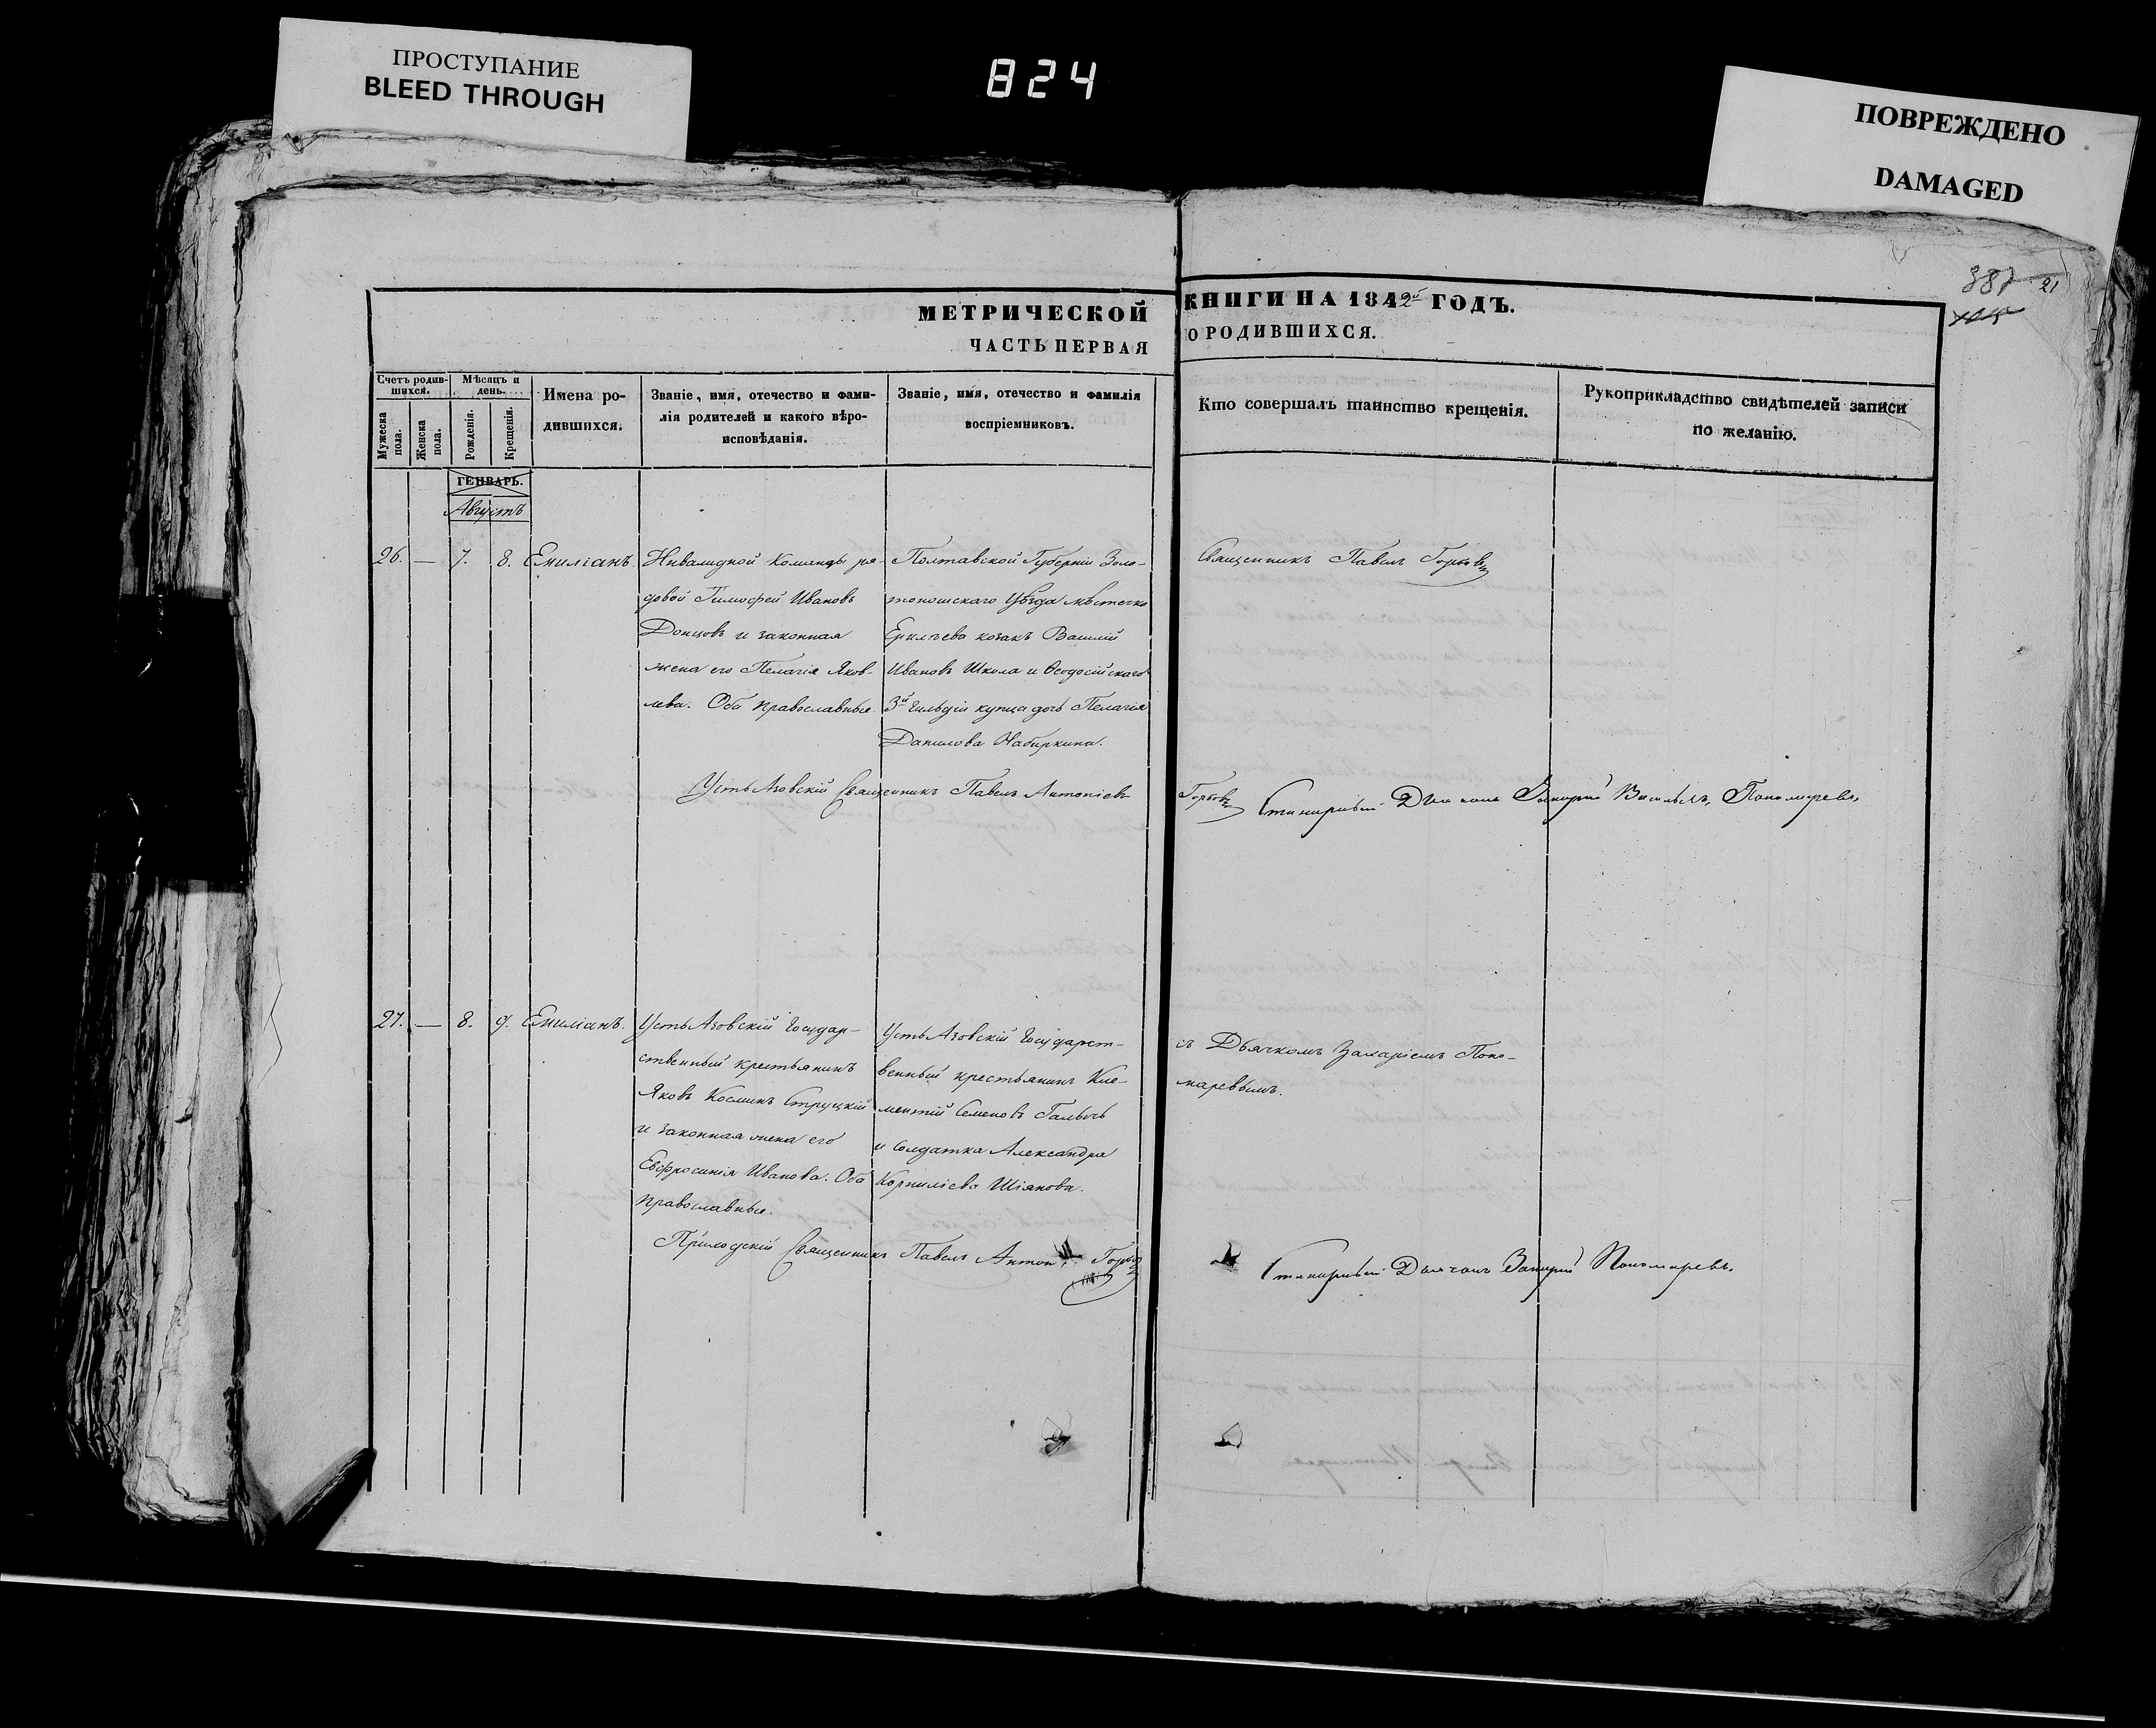 ПРОСТУПАНИЕ
BLEED THROUGH
824
ПОВРЕЖДЕНО
DAMAGED
387 21
МЕТРИЧЕСКОЙ КНИГИ НА 1842й ГОДЪ.
ЧАСТЬ ПЕРВАЯ О РОДИВШИХСЯ.
Счетъ родив-
шихся.
Мужеска
пола.
Женска
пола.
Мѣсяцъ и
день.
Рожденія.
Крещенія.
Имена ро-
дившихся.
Званіе, имя, отечество и фами-
лія родителей и какого вѣро-
исповѣданія.
Званіе, имя, отечество и фамилія
воспріемниковъ.
Кто совершалъ таинство крещенія.
Рукоприкладство свидѣтелей записи
по желанію.
ГЕНВАРЬ.
Августъ
26. — 7. 8. Емиліанъ
Инвалидной Команды ря-
довой Тимофей Ивановъ
Донцовъ и законная
жена его Пелагія Яков-
лева. Оба православные.
Полтавской Губерніи Золо-
тоношскаго Уѣзда мѣстечка
козакъ Василій
Ивановъ Школа и Ѳеодосійскаго
3й гильдіи купца дочь Пелагія
Данилова
Священникъ Павелъ
Усть Азовскій Священникъ Павелъ Антоніевъ
Пономаревъ
27. — 8. 9. Емиліанъ.
Усть Азовскій Государ-
ственный крестьянинъ
Яковъ Косминъ Струцкій
и законная жена его
Евфросинія Иванова. Оба
православные.
Усть Азовскій Государст-
венный крестьянинъ Кле-
ментій Семеновъ
и солдатка Александра
Корниліева Шіянова.
съ Дьячкомъ Захаріемъ Поно-
маревымъ.
Приходскій Священникъ Павелъ Антон
Пономаревъ.